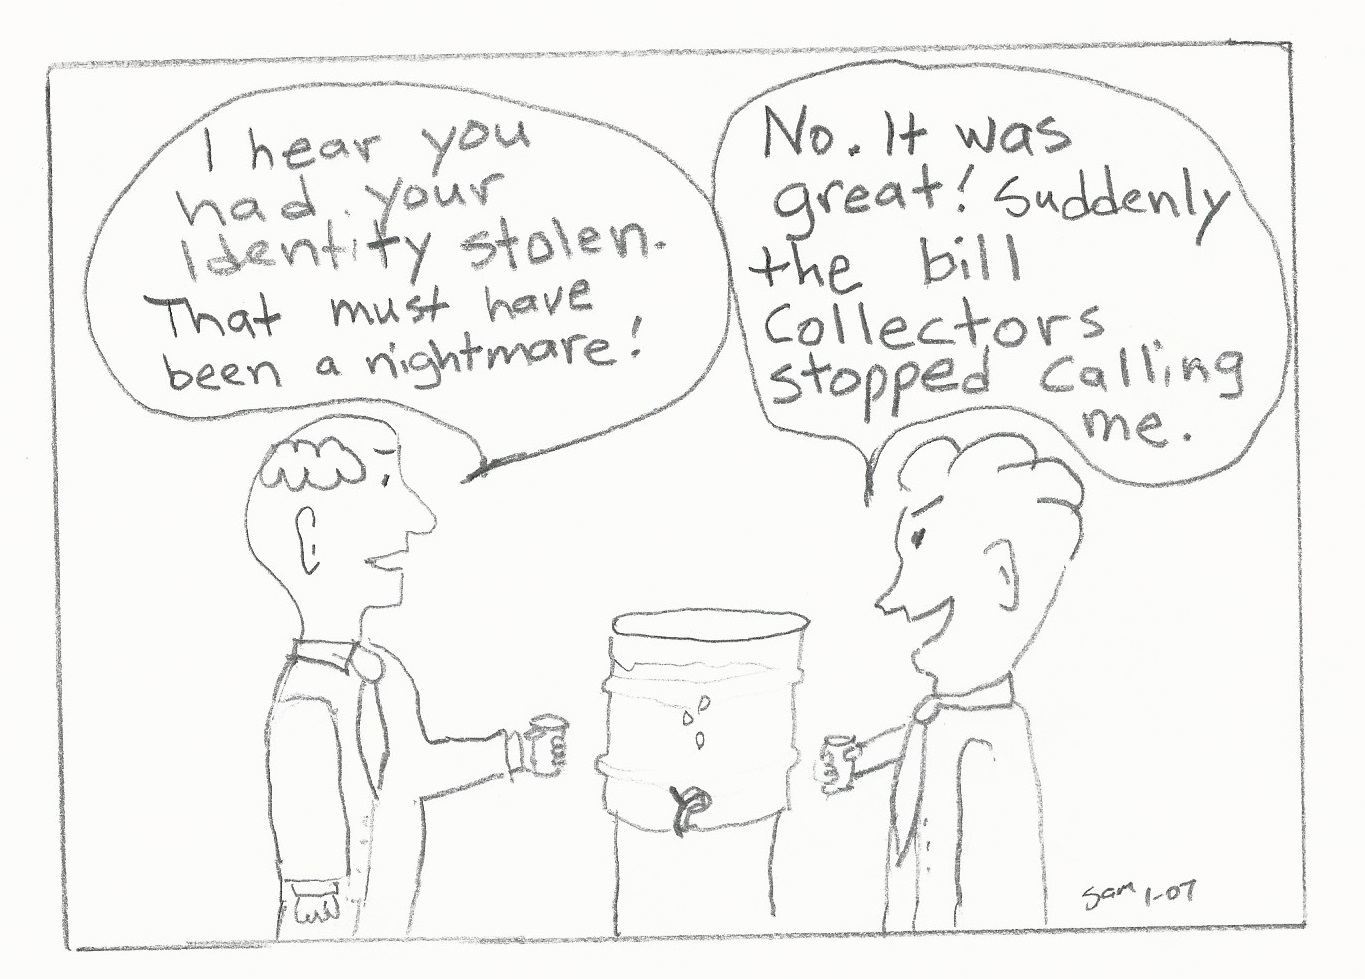 I hear you
had your
Identity stolen.
That must have
been a nightmare!
No. It was
great! Suddenly
the bill
Collectors
stopped calling
me.
Sam 1-07